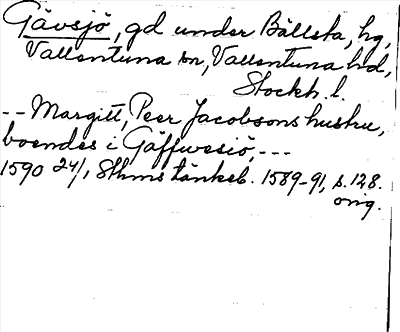 Gävsjö, gd under Bällsta, hg,
Vallentuna sn, Vallentuna hd,
Stockh. l.
-- Margitt, Peer Jacobsons hustru,
boendes i Gäffwesiö, ---
1590 24/1 Sthms tänkeb. 1589-91, s. 128.
orig.